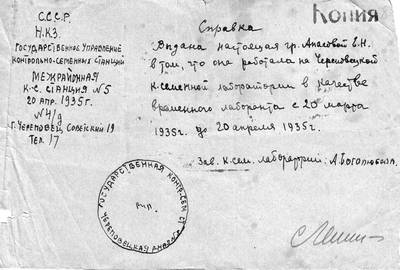 Копия
С.С.С.Р.
Н.К.З.
Государственное управление
контрольно-семенных станций
Межрайонная
К.-С. станция №5
20 апр. 1935г.
№41/g
г. Череповец, Советский 19
Тел. 17
Справка
Выдана настоящая гр. Апасовой Е.Н.
в том, что она работала на Череповецкой
к.семенной лаборатории в качестве
временного лаборанта с 20 марта
1935г. до 20 апреля 1935г.
Зав. к.сем. лабораторией: А. Боголюбова.
Государственная контр.-сем. ст.
Череповецкая